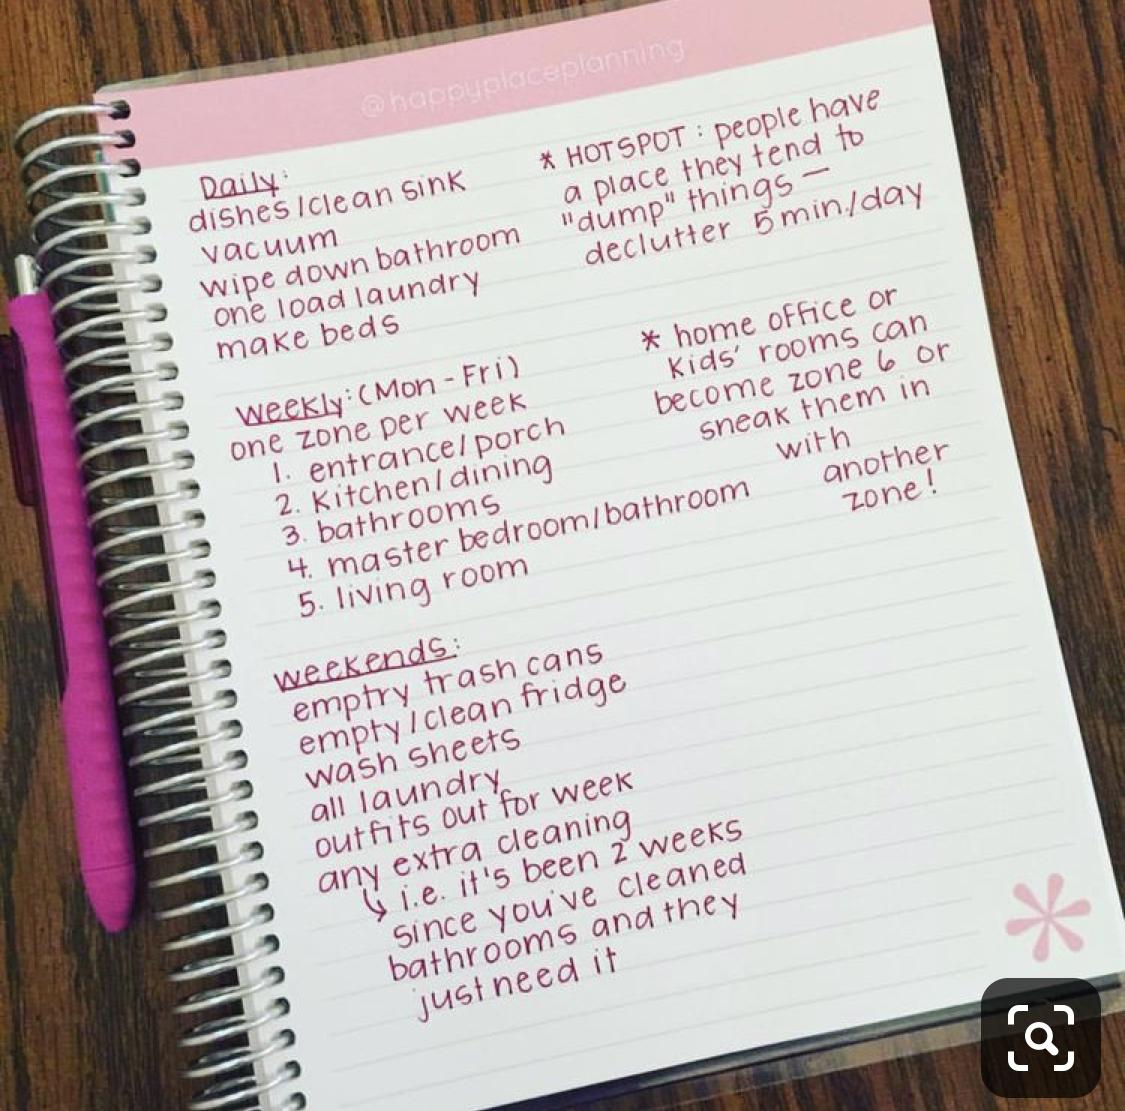 @happyplaceplanning
Daily:
dishes/clean sink
vacuum
wipe down bathroom
one load laundry
make beds
* HOTSPOT: people have
a place they tend to
"dump" things —
declutter 5 min./day
weekly: (Mon-Fri)
one zone per week
1. entrance/porch
2. Kitchen/dining
3. bathrooms
4. master bedroom/bathroom
5. living room
* home office or
kids' rooms can
become zone 6 or
sneak them in
with
another
zone!
weekends:
emptry trash cans
empty/clean fridge
wash sheets
all laundry
outfits out for week
any extra cleaning
↳ i.e. it's been 2 weeks
since you've cleaned
bathrooms and they
just need it